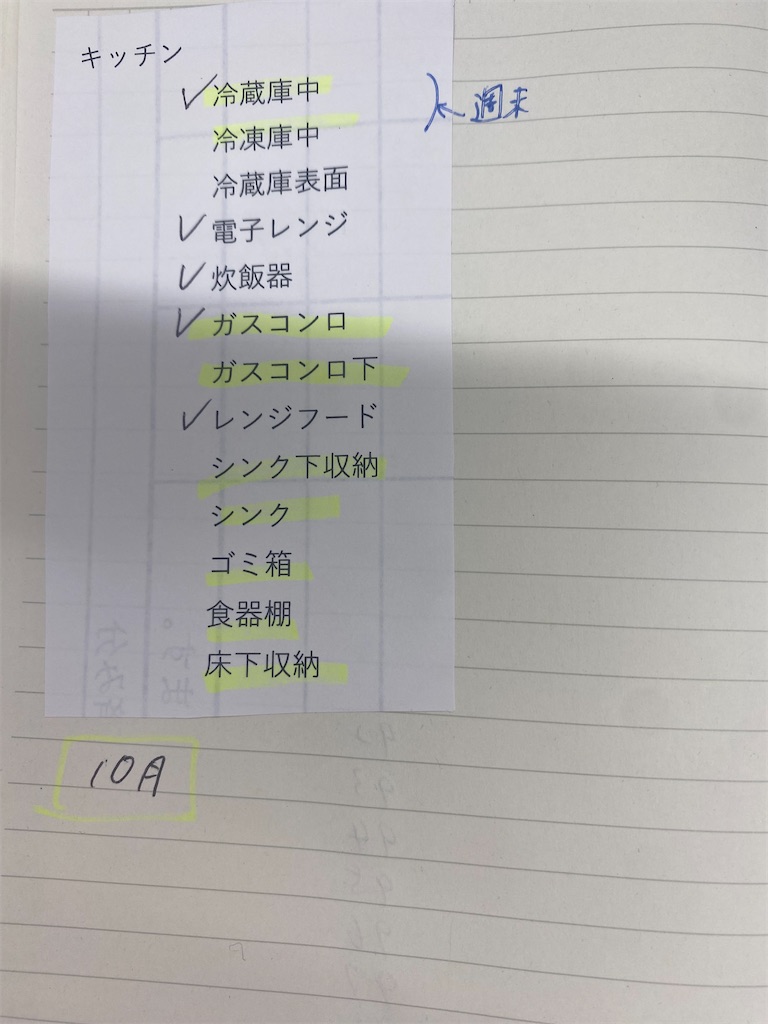 キッチン
✓冷蔵庫中
冷凍庫中
冷蔵庫表面
✓電子レンジ
✓炊飯器
✓ガスコンロ
ガスコンロ下
✓レンジフード
シンク下収納
シンク
ゴミ箱
食器棚
床下収納
週末
10月